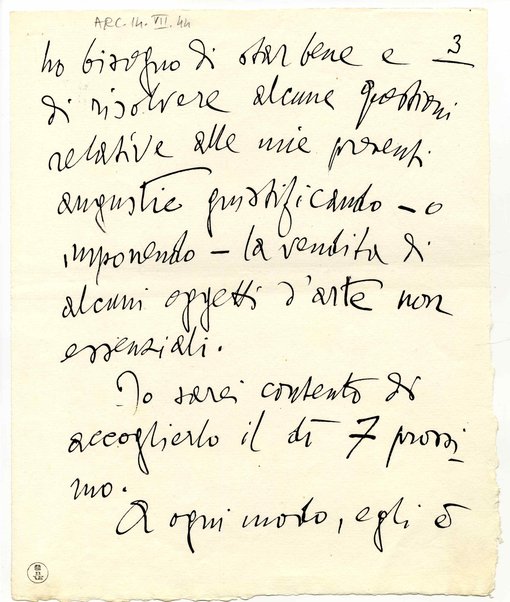 ARC. 14. VII. 44
3
ho bisogno di star bene e
di risolvere alcune questioni
relative alle mie presenti
angustie giustificando – o
imponendo – la vendita di
alcuni oggetti d'arte non
essenziali.
Io sarei contento di
accoglierlo il dì 7 prossi
mo.
A ogni modo, egli è